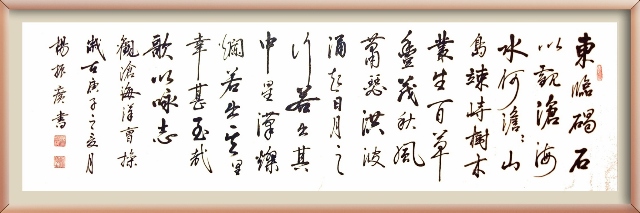 東臨碣石
以觀滄海
水何澹〻山
島竦峙樹木
叢生百草
豐茂秋風
蕭瑟洪波
涌起日月之
行若出其
中星漢燦
爛若出其里
幸甚至哉
歌以咏志
觀滄海詩曹操
歲在庚子之夏月
楊振廣書